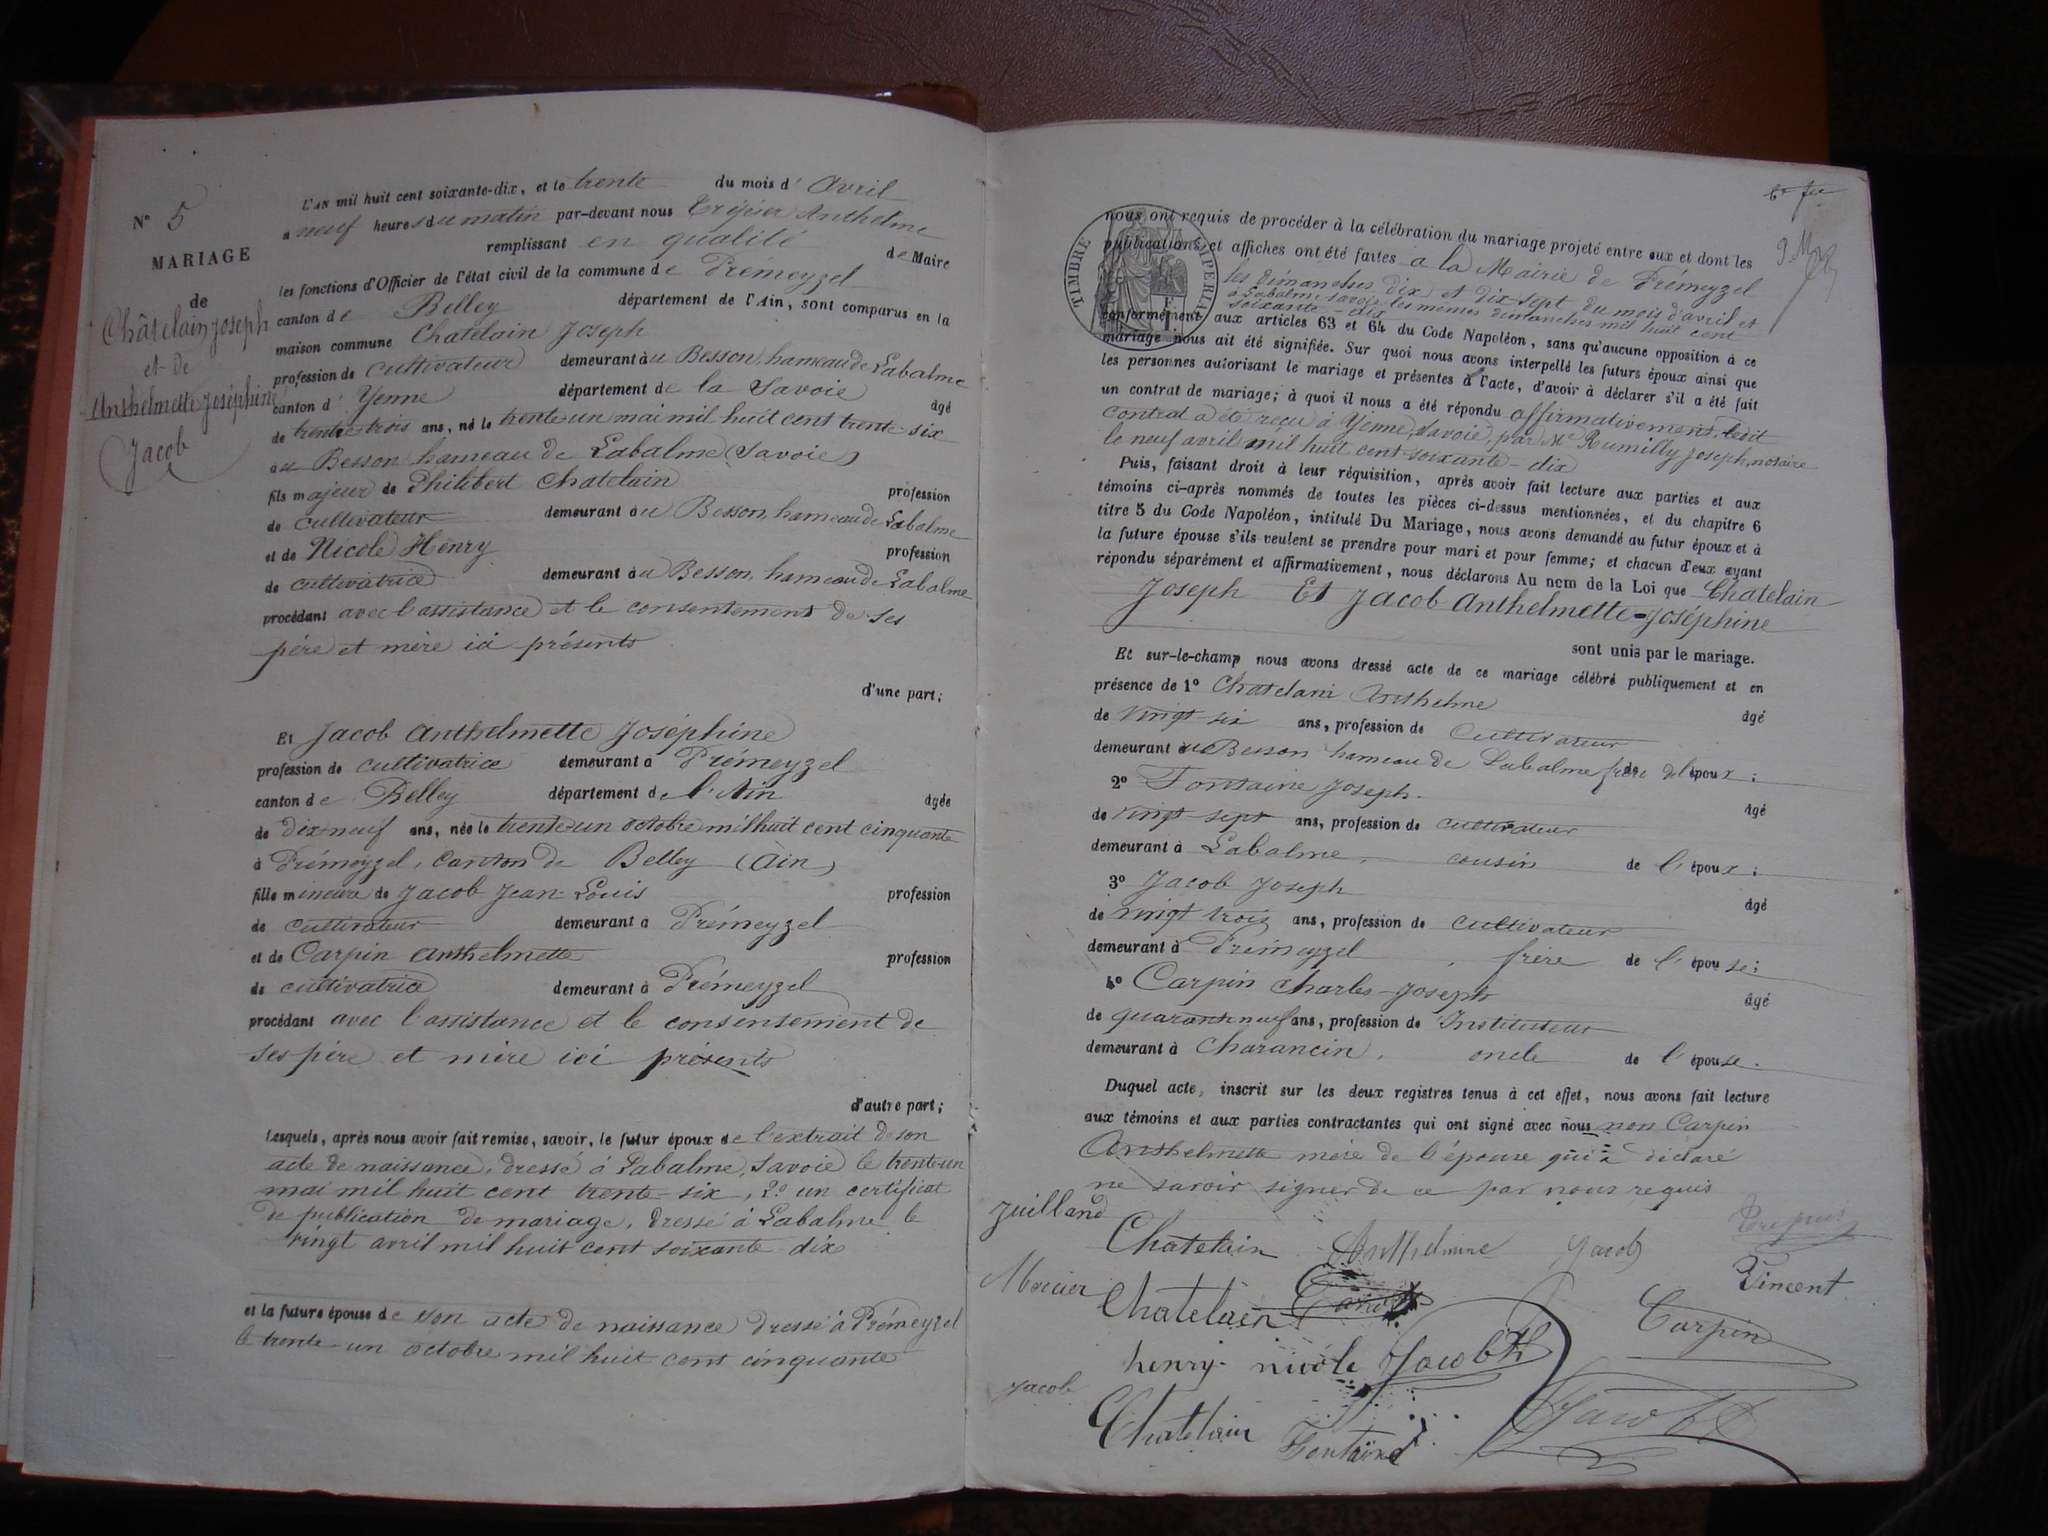 N° 5
MARIAGE
de
Châtelain Joseph
et de
Anthelmette Joséphine
Jacob
L'AN mil huit cent soixante-dix, et le trente du mois d'Avril
à neuf heures du matin par-devant nous Trépier Anthelme
remplissant en qualité de Maire
les fonctions d'Officier de l'état civil de la commune de Prémeyzel
canton de Belley département de l'Ain, sont comparus en la
maison commune Chatelain Joseph
profession de cultivateur demeurant au Besson, hameau de Labalme
canton d'Yenne département de la Savoie âgé
de trente-trois ans, né le trente-un mai mil huit cent trente-six
au Besson hameau de Labalme (Savoie)
fils majeur de Philibert Chatelain profession
de cultivateur demeurant au Besson, hameau de Labalme
et de Nicole Henry profession
de cultivatrice demeurant au Besson, hameau de Labalme
procédant avec l'assistance et le consentement de ses
père et mère ici présents
d'une part;
Et Jacob Anthelmette Joséphine
profession de cultivatrice demeurant à Prémeyzel
canton de Belley département de l'Ain âgée
de dix-neuf ans, née le trente-un octobre mil huit cent cinquante
à Prémeyzel, canton de Belley (Ain)
fille mineure de Jacob Jean-Louis profession
de cultivateur demeurant à Prémeyzel
et de Carpin Anthelmette profession
de cultivatrice demeurant à Prémeyzel
procédant avec l'assistance et le consentement de
ses père et mère ici présents
d'autre part;
Lesquels, après nous avoir fait remise, savoir, le futur époux de l'extrait de son
acte de naissance, dressé à Labalme, Savoie le trente-un
mai mil huit cent trente-six, 2° un certificat
de publication de mariage, dressé à Labalme le
vingt avril mil huit cent soixante-dix
et la future épouse de son acte de naissance dressé à Prémeyzel
le trente-un octobre mil huit cent cinquante
TIMBRE IMPERIAL
nous ont requis de procéder à la célébration du mariage projeté entre eux et dont les
publications et affiches ont été faites à la Mairie de Prémeyzel
les dimanches dix et dix-sept du mois d'avril et
à Labalme Savoie les mêmes dimanches mil huit cent
soixante-dix
conformément aux articles 63 et 64 du Code Napoléon, sans qu'aucune opposition à ce
mariage nous ait été signifiée. Sur quoi nous avons interpellé les futurs époux ainsi que
les personnes autorisant le mariage et présentes à l'acte, d'avoir à déclarer s'il a été fait
un contrat de mariage; à quoi il nous a été répondu affirmativement, ledit
contrat a été reçu à Yenne, Savoie, par Me Rumilly Joseph, notaire
le neuf avril mil huit cent soixante-dix
Puis, faisant droit à leur réquisition, après avoir fait lecture aux parties et aux
témoins ci-après nommés de toutes les pièces ci-dessus mentionnées, et du chapitre 6
titre 5 du Code Napoléon, intitulé Du Mariage, nous avons demandé au futur époux et à
la future épouse s'ils veulent se prendre pour mari et pour femme; et chacun d'eux ayant
répondu séparément et affirmativement, nous déclarons Au nom de la Loi que Chatelain
Joseph Et Jacob Anthelmette-Joséphine
sont unis par le mariage.
Et sur-le-champ nous avons dressé acte de ce mariage célébré publiquement et en
présence de 1° Chatelain Anthelme âgé
de vingt-six ans, profession de cultivateur
demeurant au Besson hameau de Labalme frère de l'époux;
2° Fontaine Joseph. âgé
de vingt-sept ans, profession de cultivateur
demeurant à Labalme, cousin de l'époux;
3° Jacob Joseph âgé
de vingt trois ans, profession de cultivateur
demeurant à Prémeyzel, frère de l'épouse;
4° Carpin Charles-Joseph âgé
de quarante neuf ans, profession de Instituteur
demeurant à Charancin, oncle de l'épouse.
Duquel acte, inscrit sur les deux registres tenus à cet effet, nous avons fait lecture
aux témoins et aux parties contractantes qui ont signé avec nous non Carpin
Anthelmette mère de l'épouse qui a déclaré
ne savoir signer de ce par nous requis
Juilland
Chatelain Anthelmine Jacob
Vincent
Mercier
Chatelain
Carpin
henry nicole Jacob
Jacob
Chatelain Fontaine
Jacob